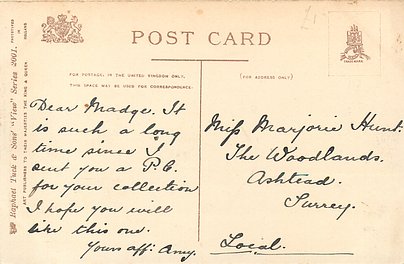 POST CARD
FOR POSTAGE IN THE UNITED KINGDOM ONLY.
THIS SPACE MAY BE USED FOR CORRESPONDENCE.
(FOR ADDRESS ONLY)
TRADE MARK
Raphael Tuck & Sons' "View" Series 2001.
ART PUBLISHERS TO THEIR MAJESTIES THE KING & QUEEN.
Dear Madge. It
is such a long
time since I
sent you a P.C.
for your collection
I hope you will
like this one.
Yours aff: Amy.
Miss Marjorie Hunt.
The Woodlands.
Ashtead.
Surrey.
Local.
£1